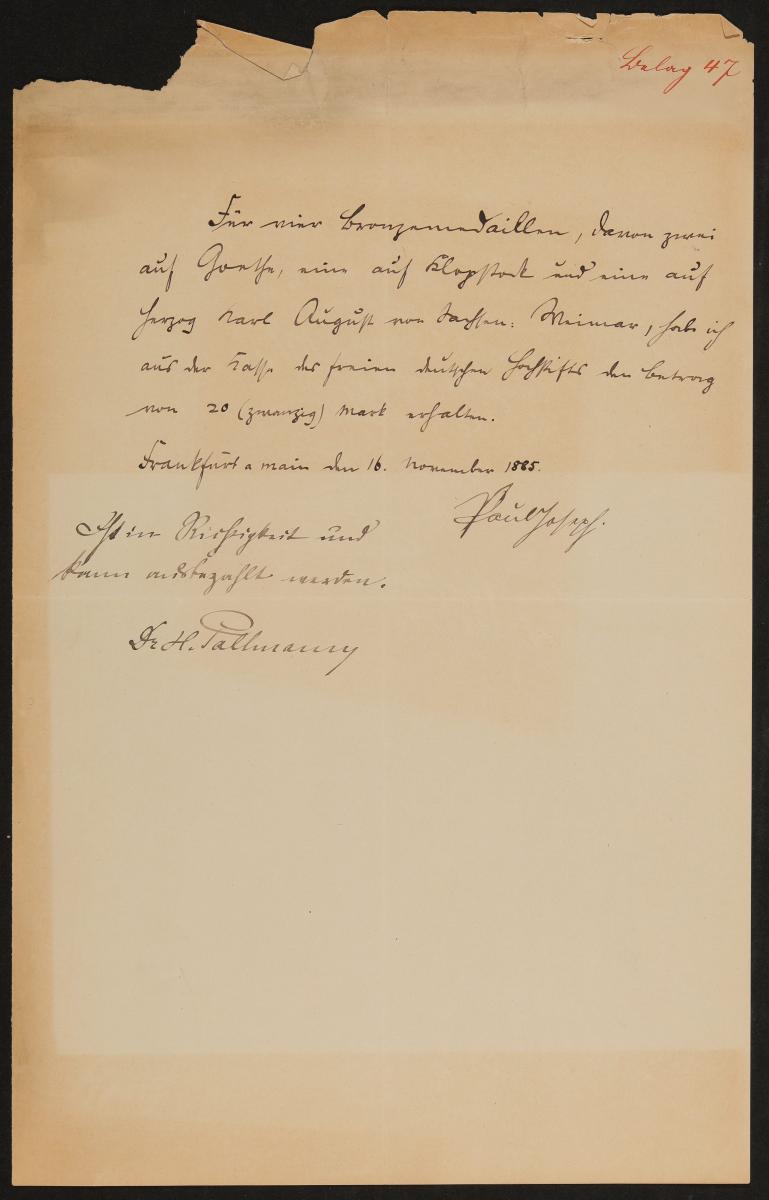 Belag 47
Für vier Bronzemedaillen, davon zwei
auf Goethe, eine auf Klopstock und eine auf
Herzog Karl August von Sachsen-Weimar, habe ich
aus der Kasse des freien deutschen Hochstifts den Betrag
von 20 (zwanzig) Mark erhalten.
Frankfurt a Main den 16. November 1885.
Paul Joseph.
Ist in Richtigkeit und
kann ausbezahlt werden.
Dr H. Pallmann